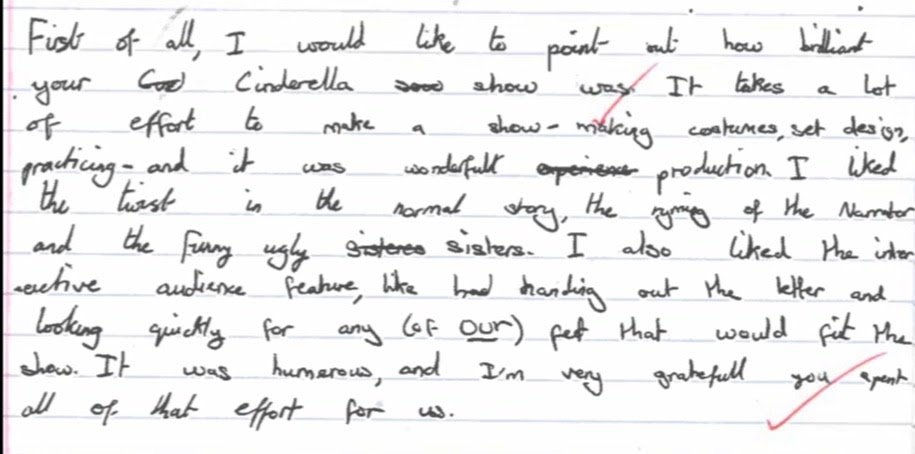 First of all, I would like to point out how brilliant
your Cinderella show was. It takes a lot
of effort to make a show - making costumes, set design,
practicing - and it was wonderfull production. I liked
the twist in the normal story, the ryming of the Narrator
and the funny ugly sisters. I also liked the inter
-active audience feature, like handing out the letter and
looking quickly for any (of our) feet that would fit the
show. It was humerous, and I'm very gratefull you spent
all of that effort for us.